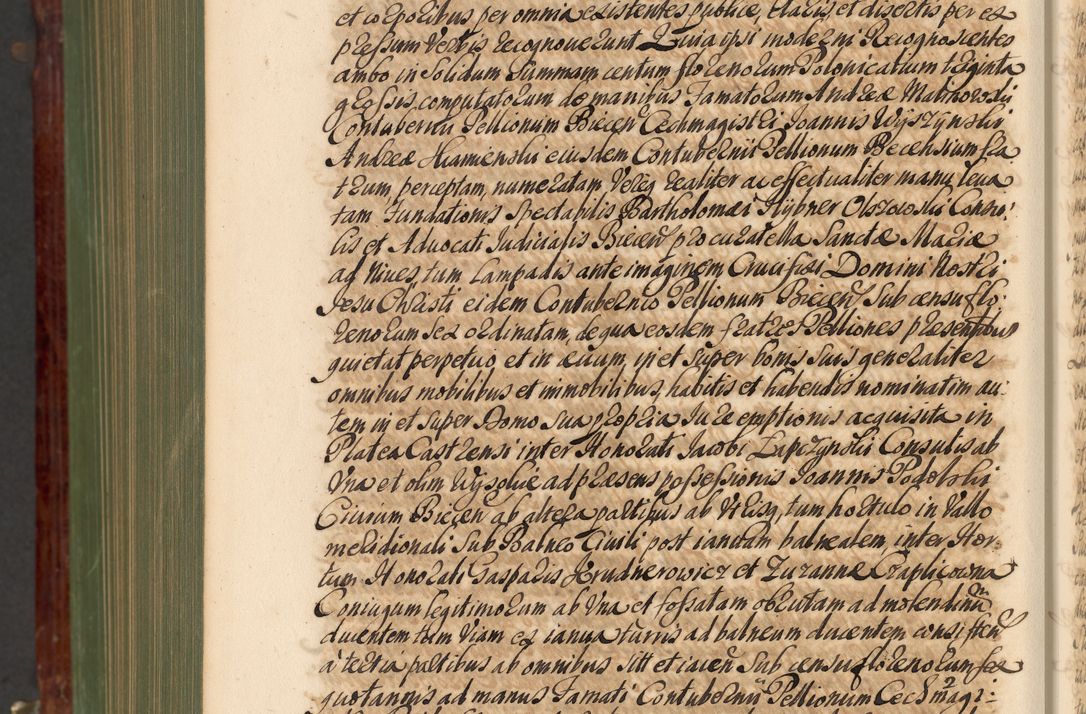 et corporibus per omnia existentes publice, claris, et disertis per ex
pressum Verbis recognoverunt Quia ipsi moderni Recognoscentes
ambo in Solidum Summam centum florenorum Polonicalium triginta
grossis computatorum de manibus Famatorum Andreæ Malinowski
Contubernij Pellionum Biecen Cechmagistri Joannis Wyszynski
Andreæ eiusdem Contubernij Pellionum Becensium fra
trum, perceptam, numeratam, Vereq realiter ac effectualiter manu leva
tam Fundationis Spectabilis Bartholomæi Hybner Olszowski Consu:
lis et Advocati Judicialis Biecen pro cura tella Sanctæ Mariæ
ad Nives, tum Lampadis ante imaginem Crucifixi Domini Nostri
Jesu Christi eidem Contubernio Pellionum Biecen Sub censu flo:
renorum sex ordinatam, de qua eosdem fratres Pelliones præsentibus
quietat perpetuo et in ævum, in et super bonis suis generaliter
omnibus mobilibus et immobilibus, habitis et habendis nominatim au:
tem in et super Domo sua propria Jure emptionis acquisita in
Platea Castrensi inter Honorati Jacobi Łapczynski Consulis ab
Vna et olim ad præsens possessionis Joannis Podolski
Civium Biecen ab altera partibus ab Vtrinq, tum hortulo in Vallo
meridionali Sub Balneo Civili post ianuam balnealem inter Hor
tum Honorati Gasparis et Zuzannæ Czaplicowna
Coniugum legitimorum ab Vna et fossatam obrutam ad molendinũ
ducentem tum Viam ex ianua turris ad balneum ducentem consisten
a tertia partibus ab omnibus sitt et iacen Sub censu florenorum sex
quotannis ad manus Famati Contubernij Pellionum Cechmagi: